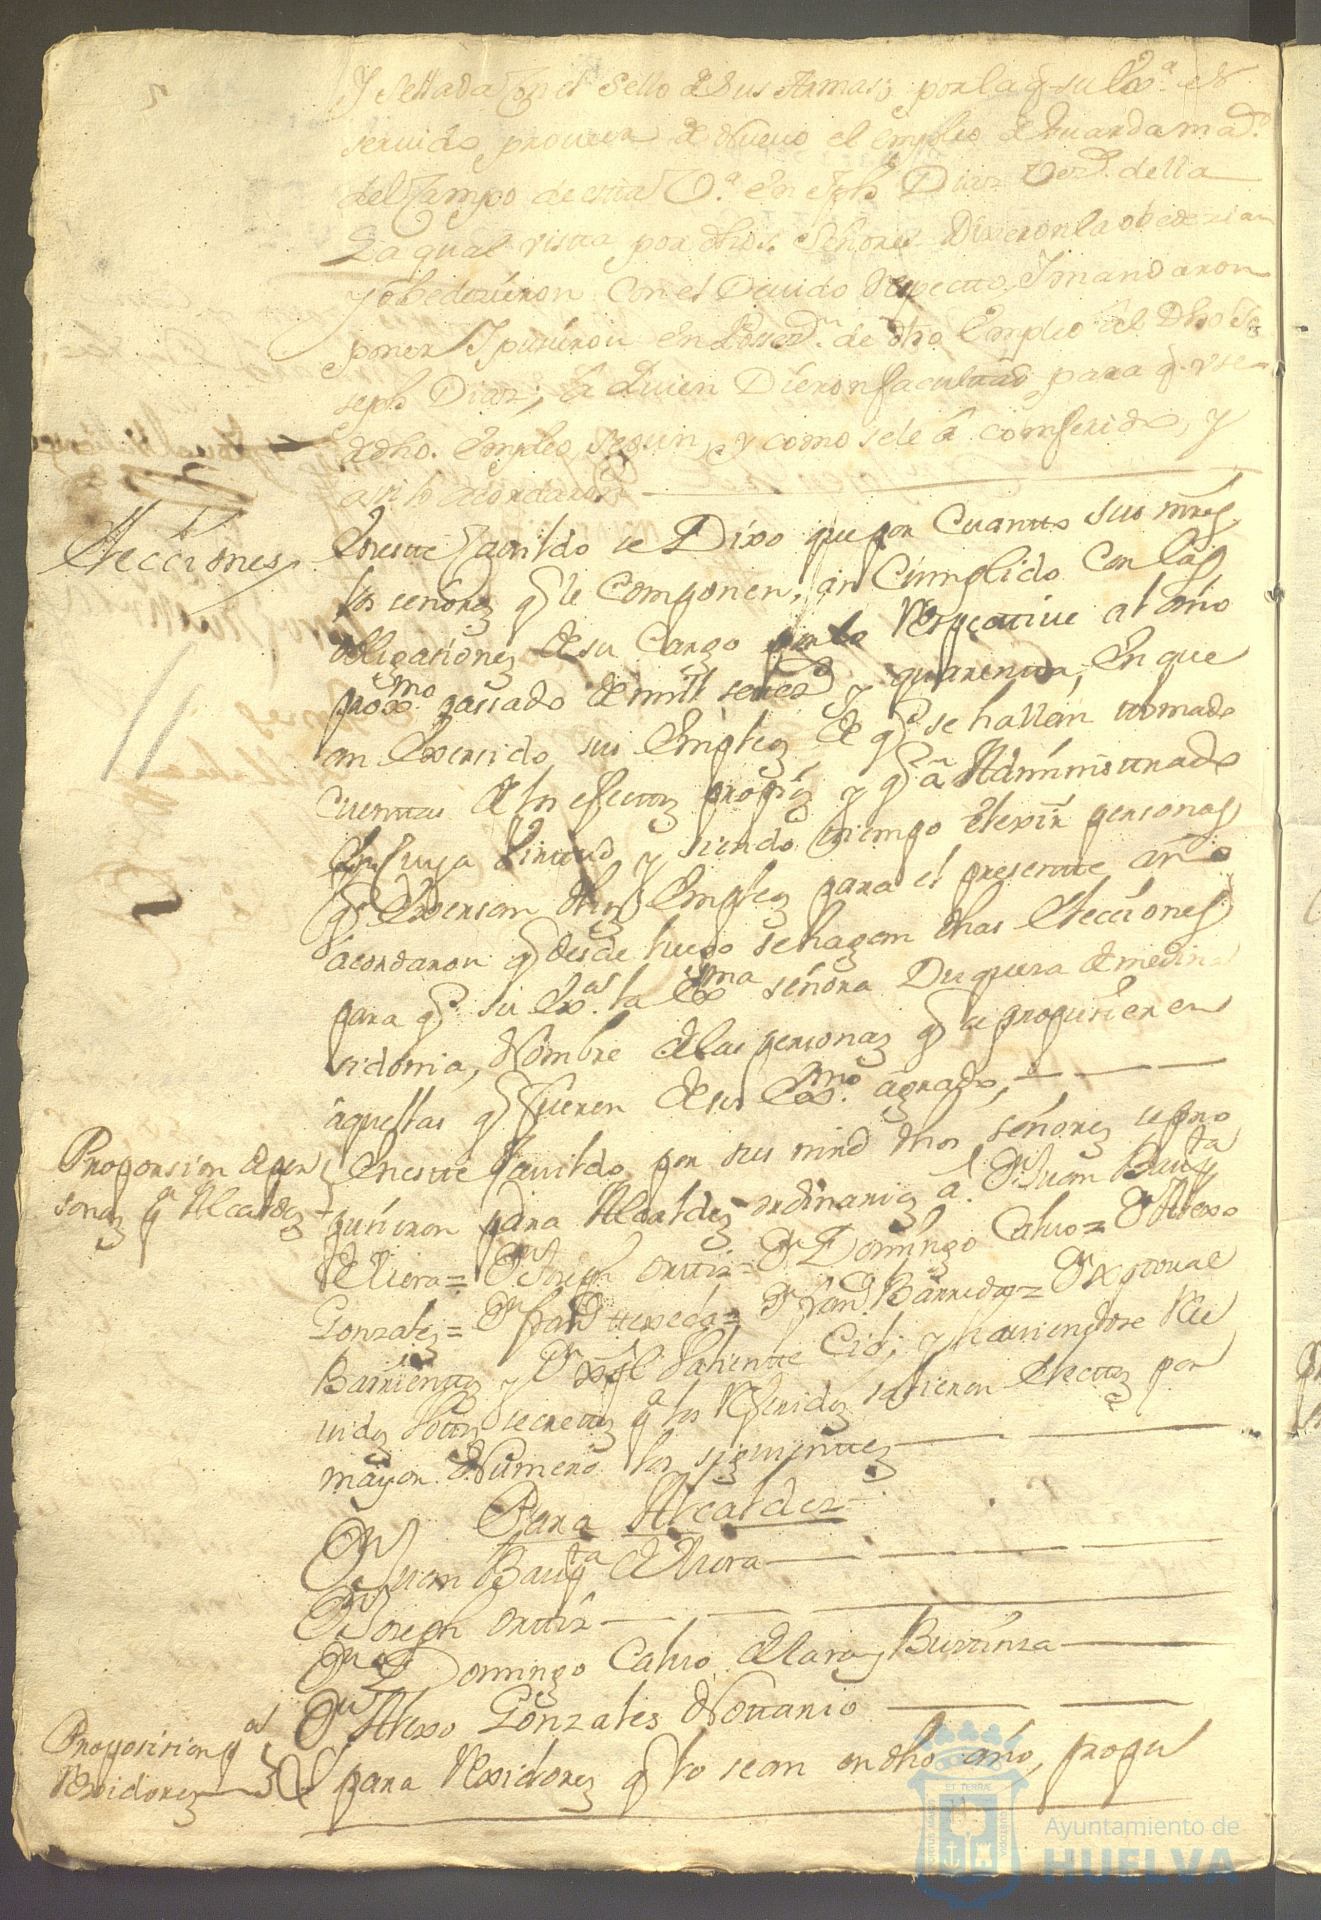 Y sellada con el sello de sus Armas; por la q. su Exª. es
servido proveer de Nuevo el empleo de Guarda maᵒʳ
del Campo de esta Vª. en Jph Diaz vezº. della
La qual vista por dhos. Señores Dixeron la obedezian
y obedecieron con el Devido Respecto, Y mandaron
poner Y pusieron en Posesⁿ. de dho Empleo al Dho Jo
seph Diaz; a quien Dieron facultad para q. use
de dho. Empleo, segun, y como se le à comferido, y
asi lo acordaron
Elecciones
En este Cavildo se Dixo que por Cuantto sus mrds
los señores q le componen, an Cumplido Con las
obligaciones de su Cargo por lo Respecative al año
proxᵐᵒ passado de mill setezᵈ y quarenta, En que
an Exersido sus Empleos, de qᵉ se hallan tomado
cuentas de los efectos propios y q à Administrado
En Cuya Virttud y siendo tiempo Elexir personas
q Exersan dhos Empleos para el presente año
acordaron q desde luego se hagan dhas Elecciones
para qᵉ su Exª. la Exᵐᵃ señora Duquesa de medina
sidonia, Nombre de las personas q se propusieren
aquellas q fueren de su Exᵐᵒ agrado,
Proporsion de per
sonas pª Alcaldes
En este Cavildo por sus mrd dhos señores se pro
pusieron para Alcaldes ordinarios a Dⁿ Juan Bauᵗᵃ
de Viera = Dⁿ Joseph Orttiz = Dⁿ Domingo Calvo = Dⁿ Alexo
Gonzales = Dⁿ franᶜᵒ = Dⁿ franᶜᵒ Barredo = Dⁿ Xptoval
Barrientos y Dⁿ Valiente Cid; y haviendose Re
uido Votos secretos pª los Referidos salieron electos por
mayor Numero los siguientes
Para Alcaldes
Dⁿ Juan Bauᵗᵃ de Viera
Dⁿ Joseph Orttiz
Dⁿ Domingo Calvo de Lara y Buttinza
Dⁿ Alexo Gonzales Novanio
Proposision pª
Rexidores
Y para Rexidores q lo sean en dho año, propu
ET TERRAE
Ayuntamiento de
HUELVA